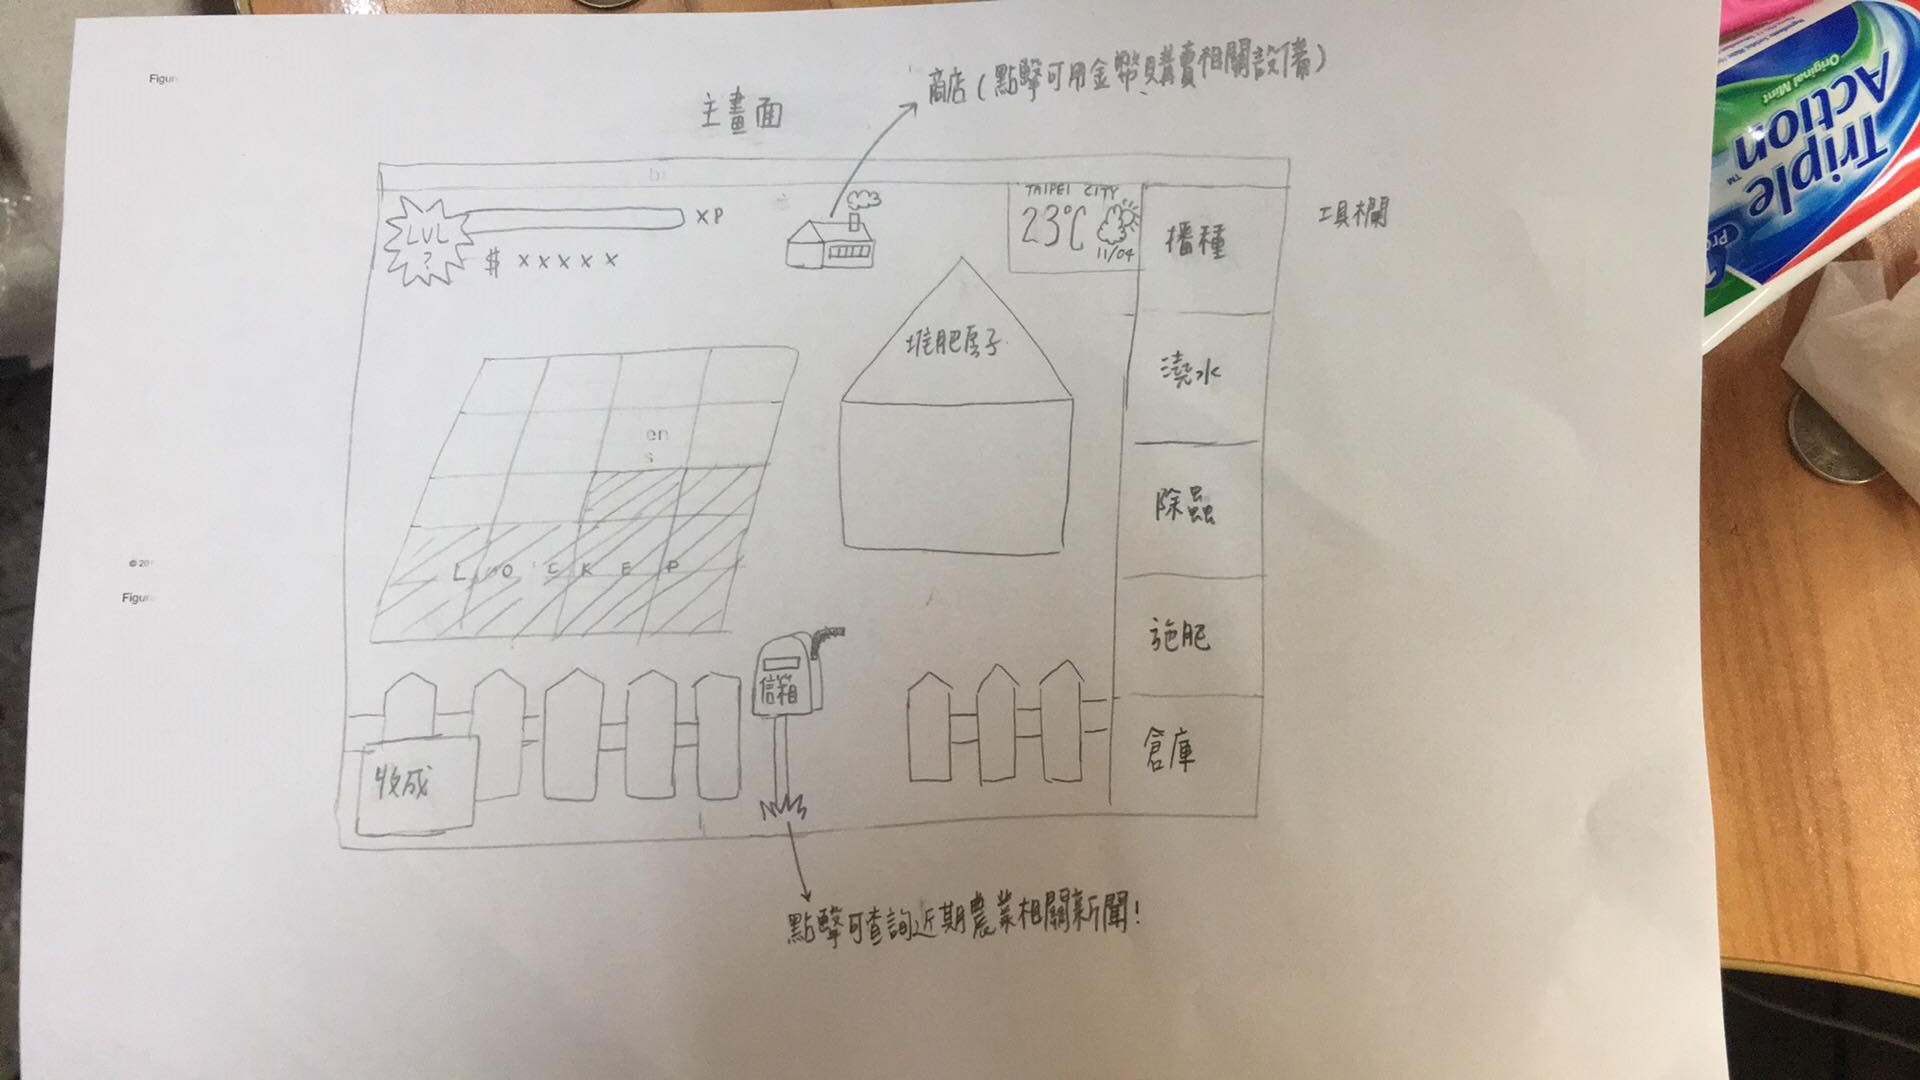 Figur
主畫面
商店(點擊可用金幣購賣相關設備)
LVL
?
XP
$ xxxxx
TAIPEI CITY
23°C
11/04
工具欄
播種
澆水
除蟲
施肥
倉庫
堆肥房子
en
s
LOCKED
信箱
收成
點擊可查詢近期農業相關新聞!
© 20
Figur
Triple
Action
Original Mint